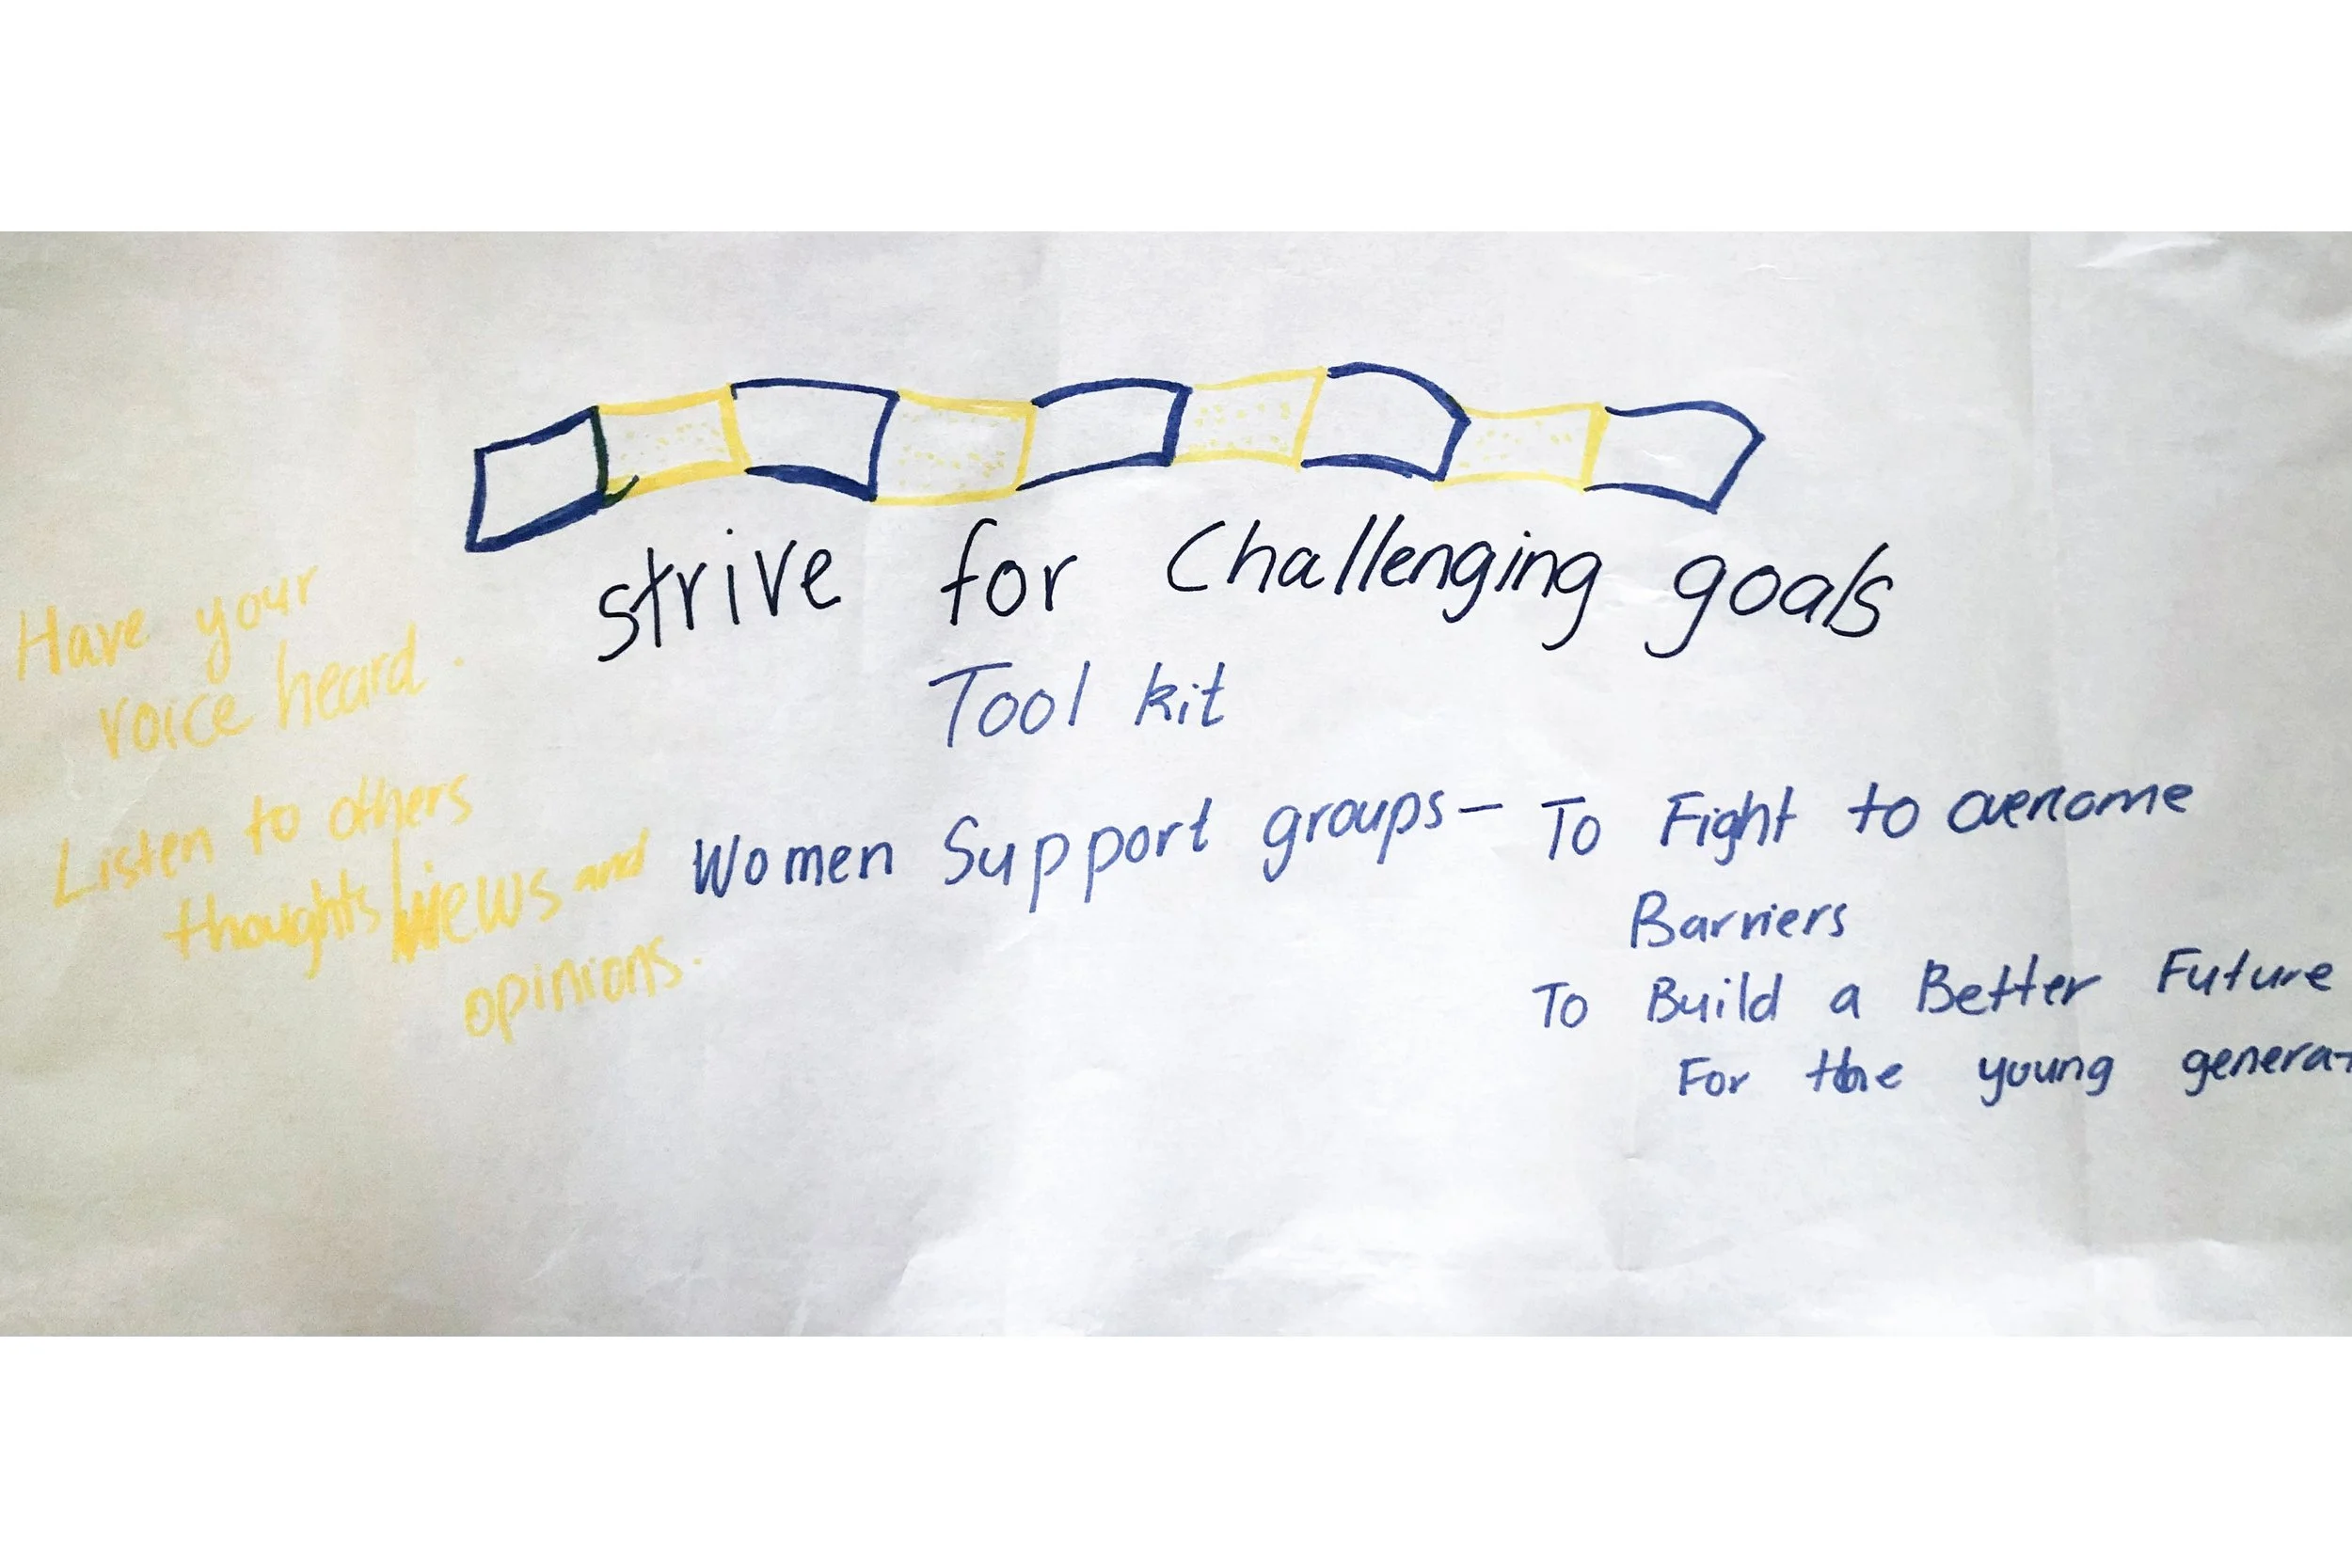 strive for Challenging goals
Tool kit
Have your
voice heard.
Listen to others
thoughts views and
opinions.
Women Support groups - To Fight to overcome
Barriers
To Build a Better Future
For the young generat